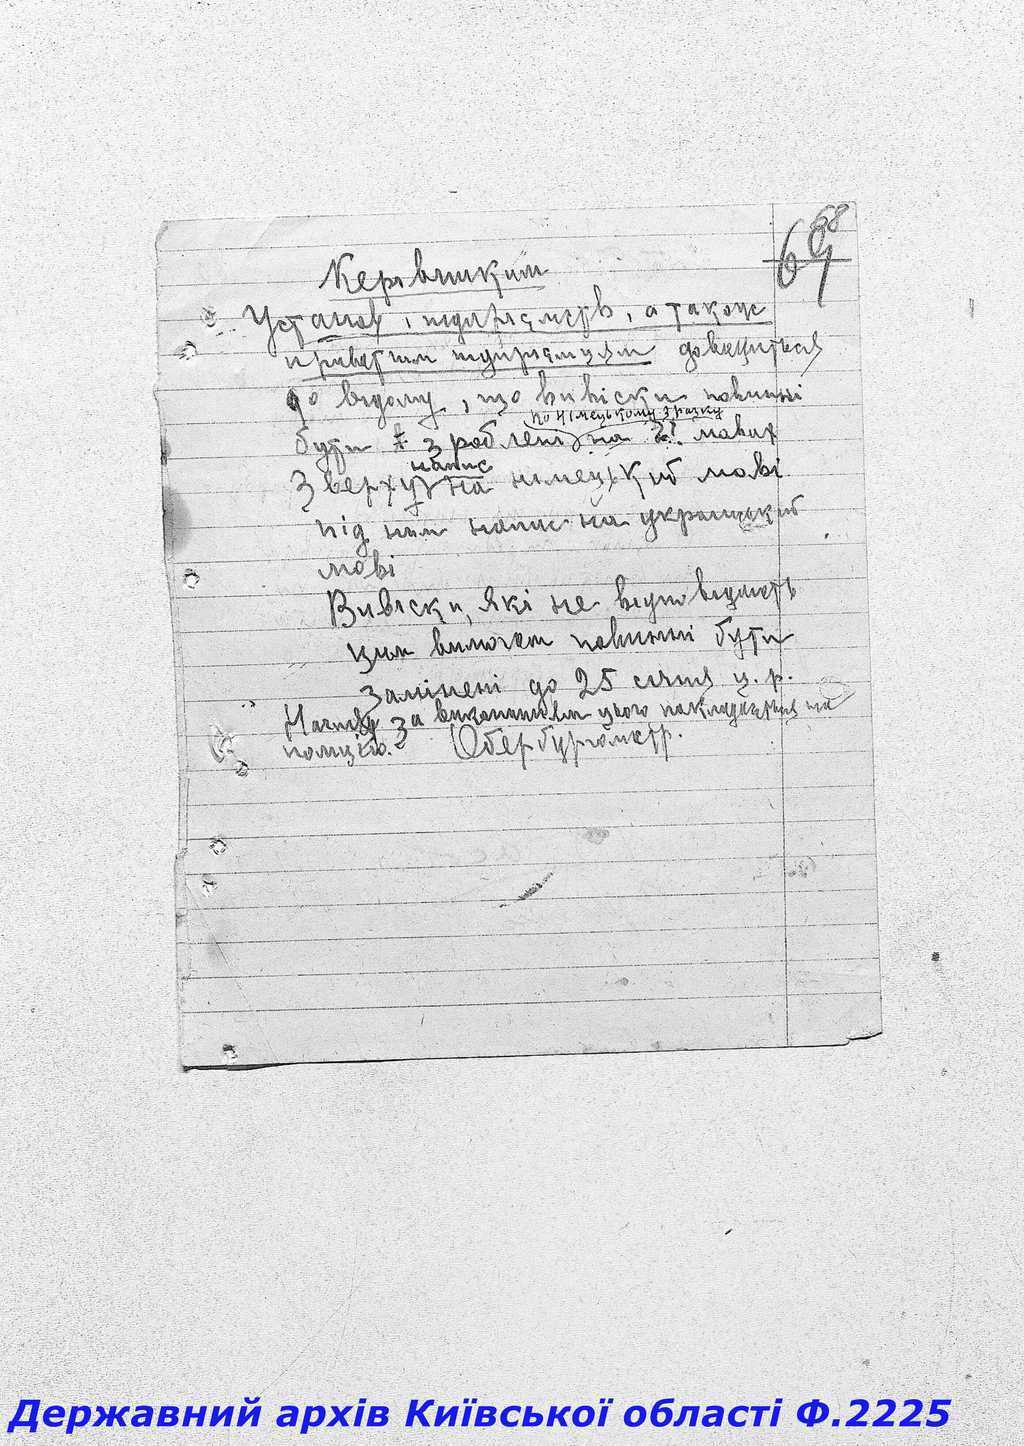 68
69
Керівникам
Установ, підприємств, а також
приватним підприємцям доводиться
до відому, що вивіски повинні
по німецькому зразку
бути зроблені на 2х мовах
напис
Зверху на німецькій мові
під ним напис на українській
мові
Вивіски, які не відповідають
цим вимогам повинні бути
замінені до 25 січня ц. р.
Нагляд за виконанням цього покладається на
поліцію. Обербургомістр.
Державний архів Київської області Ф.2225